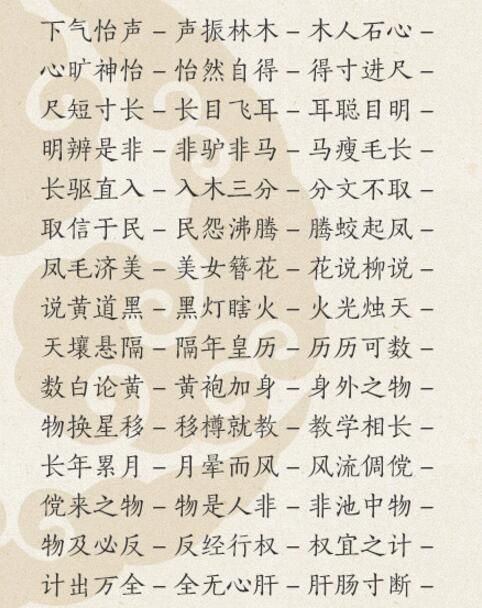 下气怡声－声振林木－木人石心－
心旷神怡－怡然自得－得寸进尺－
尺短寸长－长目飞耳－耳聪目明－
明辨是非－非驴非马－马瘦毛长－
长驱直入－入木三分－分文不取－
取信于民－民怨沸腾－腾蛟起凤－
凤毛济美－美女簪花－花说柳说－
说黄道黑－黑灯瞎火－火光烛天－
天壤悬隔－隔年皇历－历历可数－
数白论黄－黄袍加身－身外之物－
物换星移－移樽就教－教学相长－
长年累月－月晕而风－风流倜傥－
傥来之物－物是人非－非池中物－
物及必反－反经行权－权宜之计－
计出万全－全无心肝－肝肠寸断－